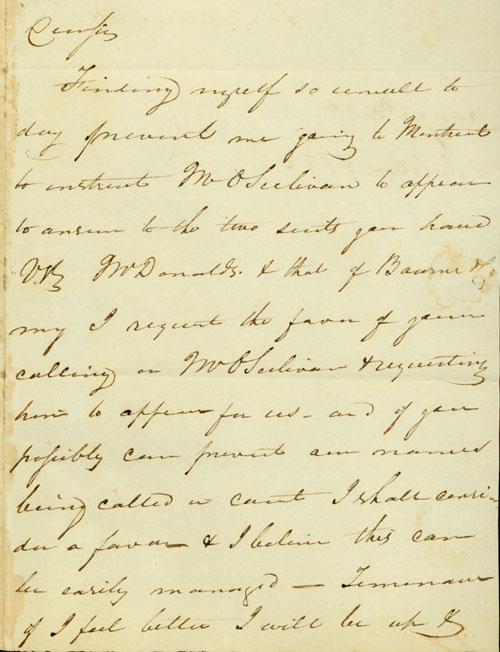 Finding myself so unwell to
day prevent me going to Montreal
to instruct Mr O'Sullivan to appear
to answer to the two suits you have
Viz McDonalds. & that of Bourne &
may I request the favor of your
calling on Mr O'Sullivan & requesting
him to appear for us - and if you
possibly can prevent our names
being called in court I shall consi-
der a favor & I believe this can
be easily managed —
if I feel better I will be up &